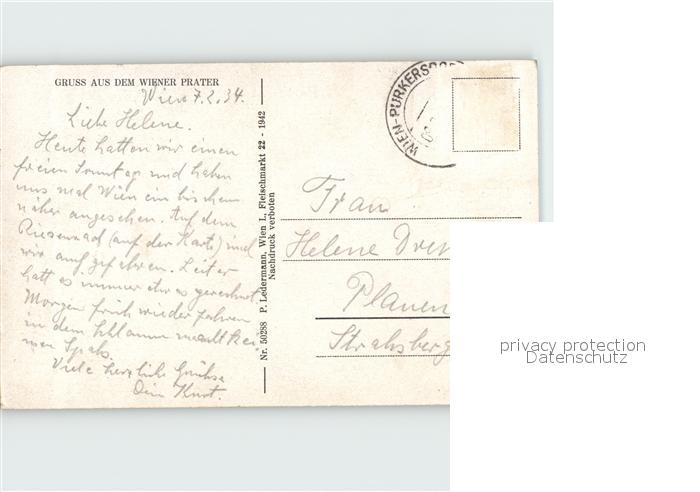 GRUSS AUS DEM WIENER PRATER
Wien 7.2.34.
Liebe Helene.
Heute hatten wir einen
freien Sonntag und haben
uns mal Wien ein bischen
näher angesehen. Auf dem
Riesenrad (auf der Karte) sind
wir auch gefahren. Leider
hatt es immer etwas geregnet.
Morgen früh wieder fahren
in dem Schlamm macht kei
nen Spaß.
Viele herzliche Grüße
Dein Kurt.
Nr. 50288 P. Ledermann, Wien I., Fleischmarkt 22 - 1942
Nachdruck verboten
WIEN-PURKERSDORF
Frau
Helene
Plauen
Strahsberg
privacy protection
Datenschutz